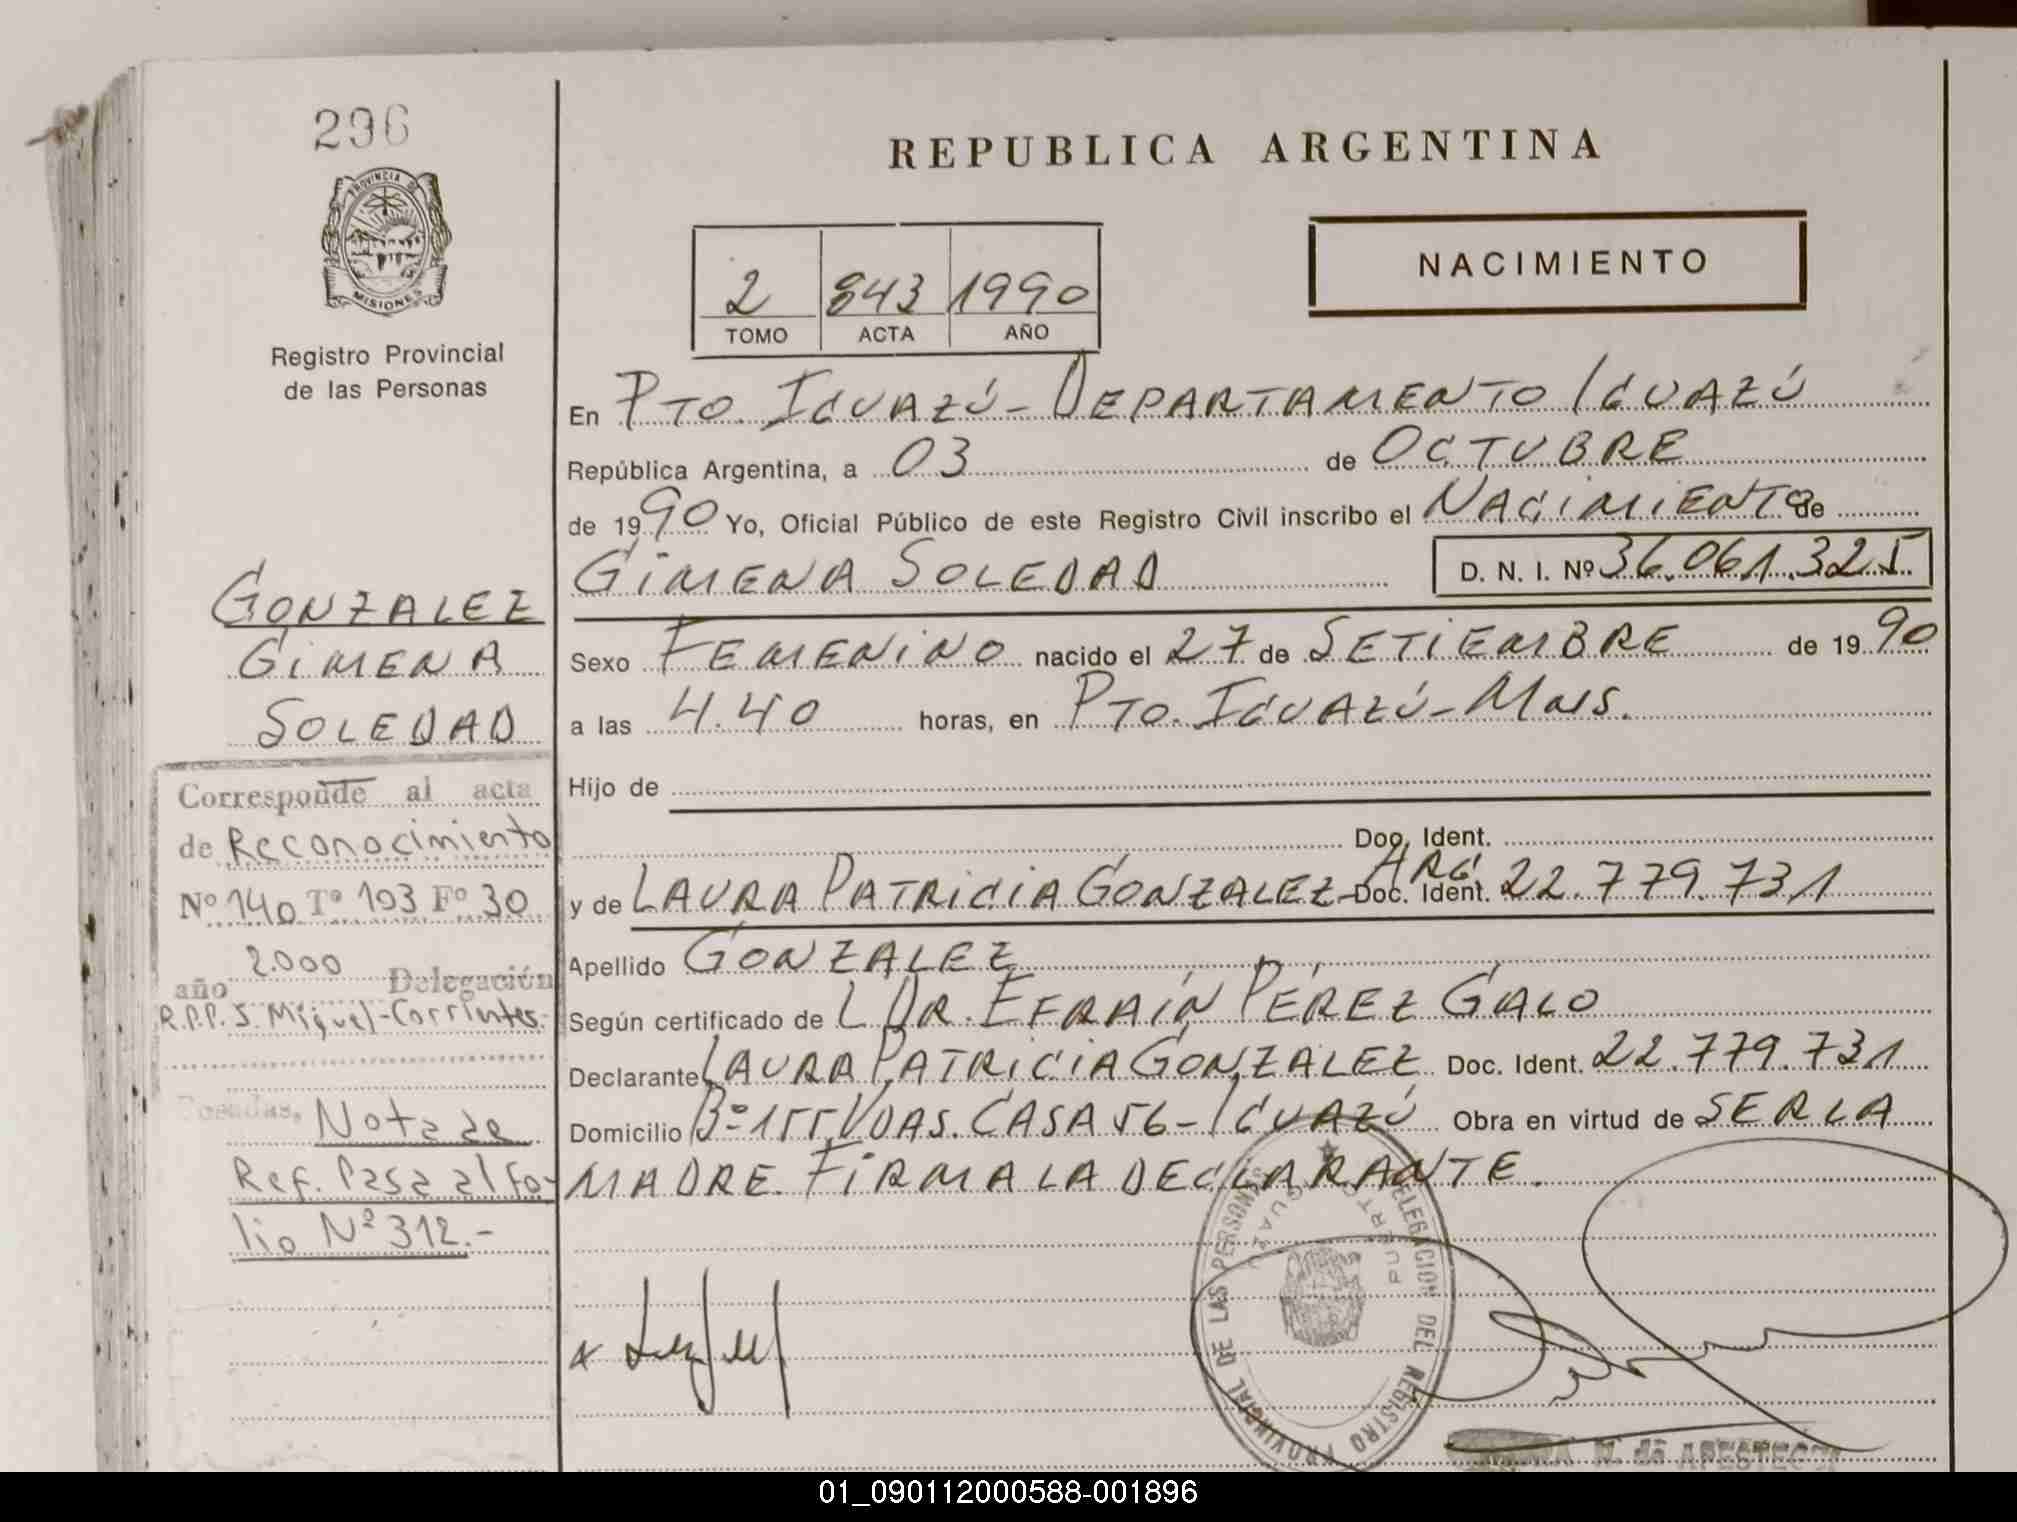 296
PROVINCIA DE
MISIONES
Registro Provincial
de las Personas
REPUBLICA ARGENTINA
2 843 1990
TOMO ACTA AÑO
NACIMIENTO
En PTO. IGUAZÚ - DEPARTAMENTO IGUAZÚ
República Argentina, a 03 de OCTUBRE
de 1990 Yo, Oficial Público de este Registro Civil inscribo el NACIMIENTO de
GIMENA SOLEDAD D. N. I. Nº 36.061.325
Sexo FEMENINO nacido el 27 de SETIEMBRE de 1990
a las 4.40 horas, en PTO. IGUAZÚ - Mnes.
Hijo de
Doc. Ident.
y de LAURA PATRICIA GONZALEZ - Doc. Ident. ARG. 22.779.731
Apellido GONZALEZ
Según certificado de L DR. EFRAÍN PÉREZ GALO
Declarante LAURA PATRICIA GONZALEZ Doc. Ident. 22.779.731
Domicilio Bº 155 VDAS. CASA 56 - IGUAZÚ Obra en virtud de SER LA
MADRE. FIRMA LA DECLARANTE.
GONZALEZ
GIMENA
SOLEDAD
Corresponde al acta
de Reconocimiento
Nº 140 Tº 103 Fº 30
año 2.000 Delegación
R.P.P. S. Miguel - Corrientes.-
Posadas, Nota de
Ref. Pasa al fo-
lio Nº 312.-
DELEGACION DEL REGISTRO PROVINCIAL DE LAS PERSONAS
PUERTO IGUAZU
01_090112000588-001896